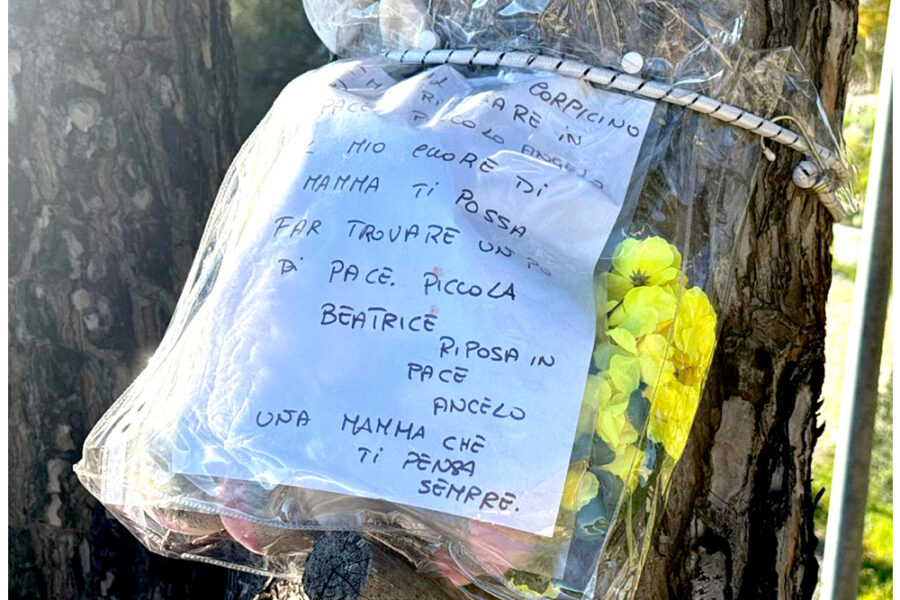 CORPICINO
RI SARE IN
PACE PICCOLO ANGELO
IL MIO CUORE DI
MAMMA TI POSSA
FAR TROVARE UN PO
DI PACE. PICCOLA
BEATRICE
RIPOSA IN
PACE
ANGELO
UNA MAMMA CHE
TI PENSA
SEMPRE.